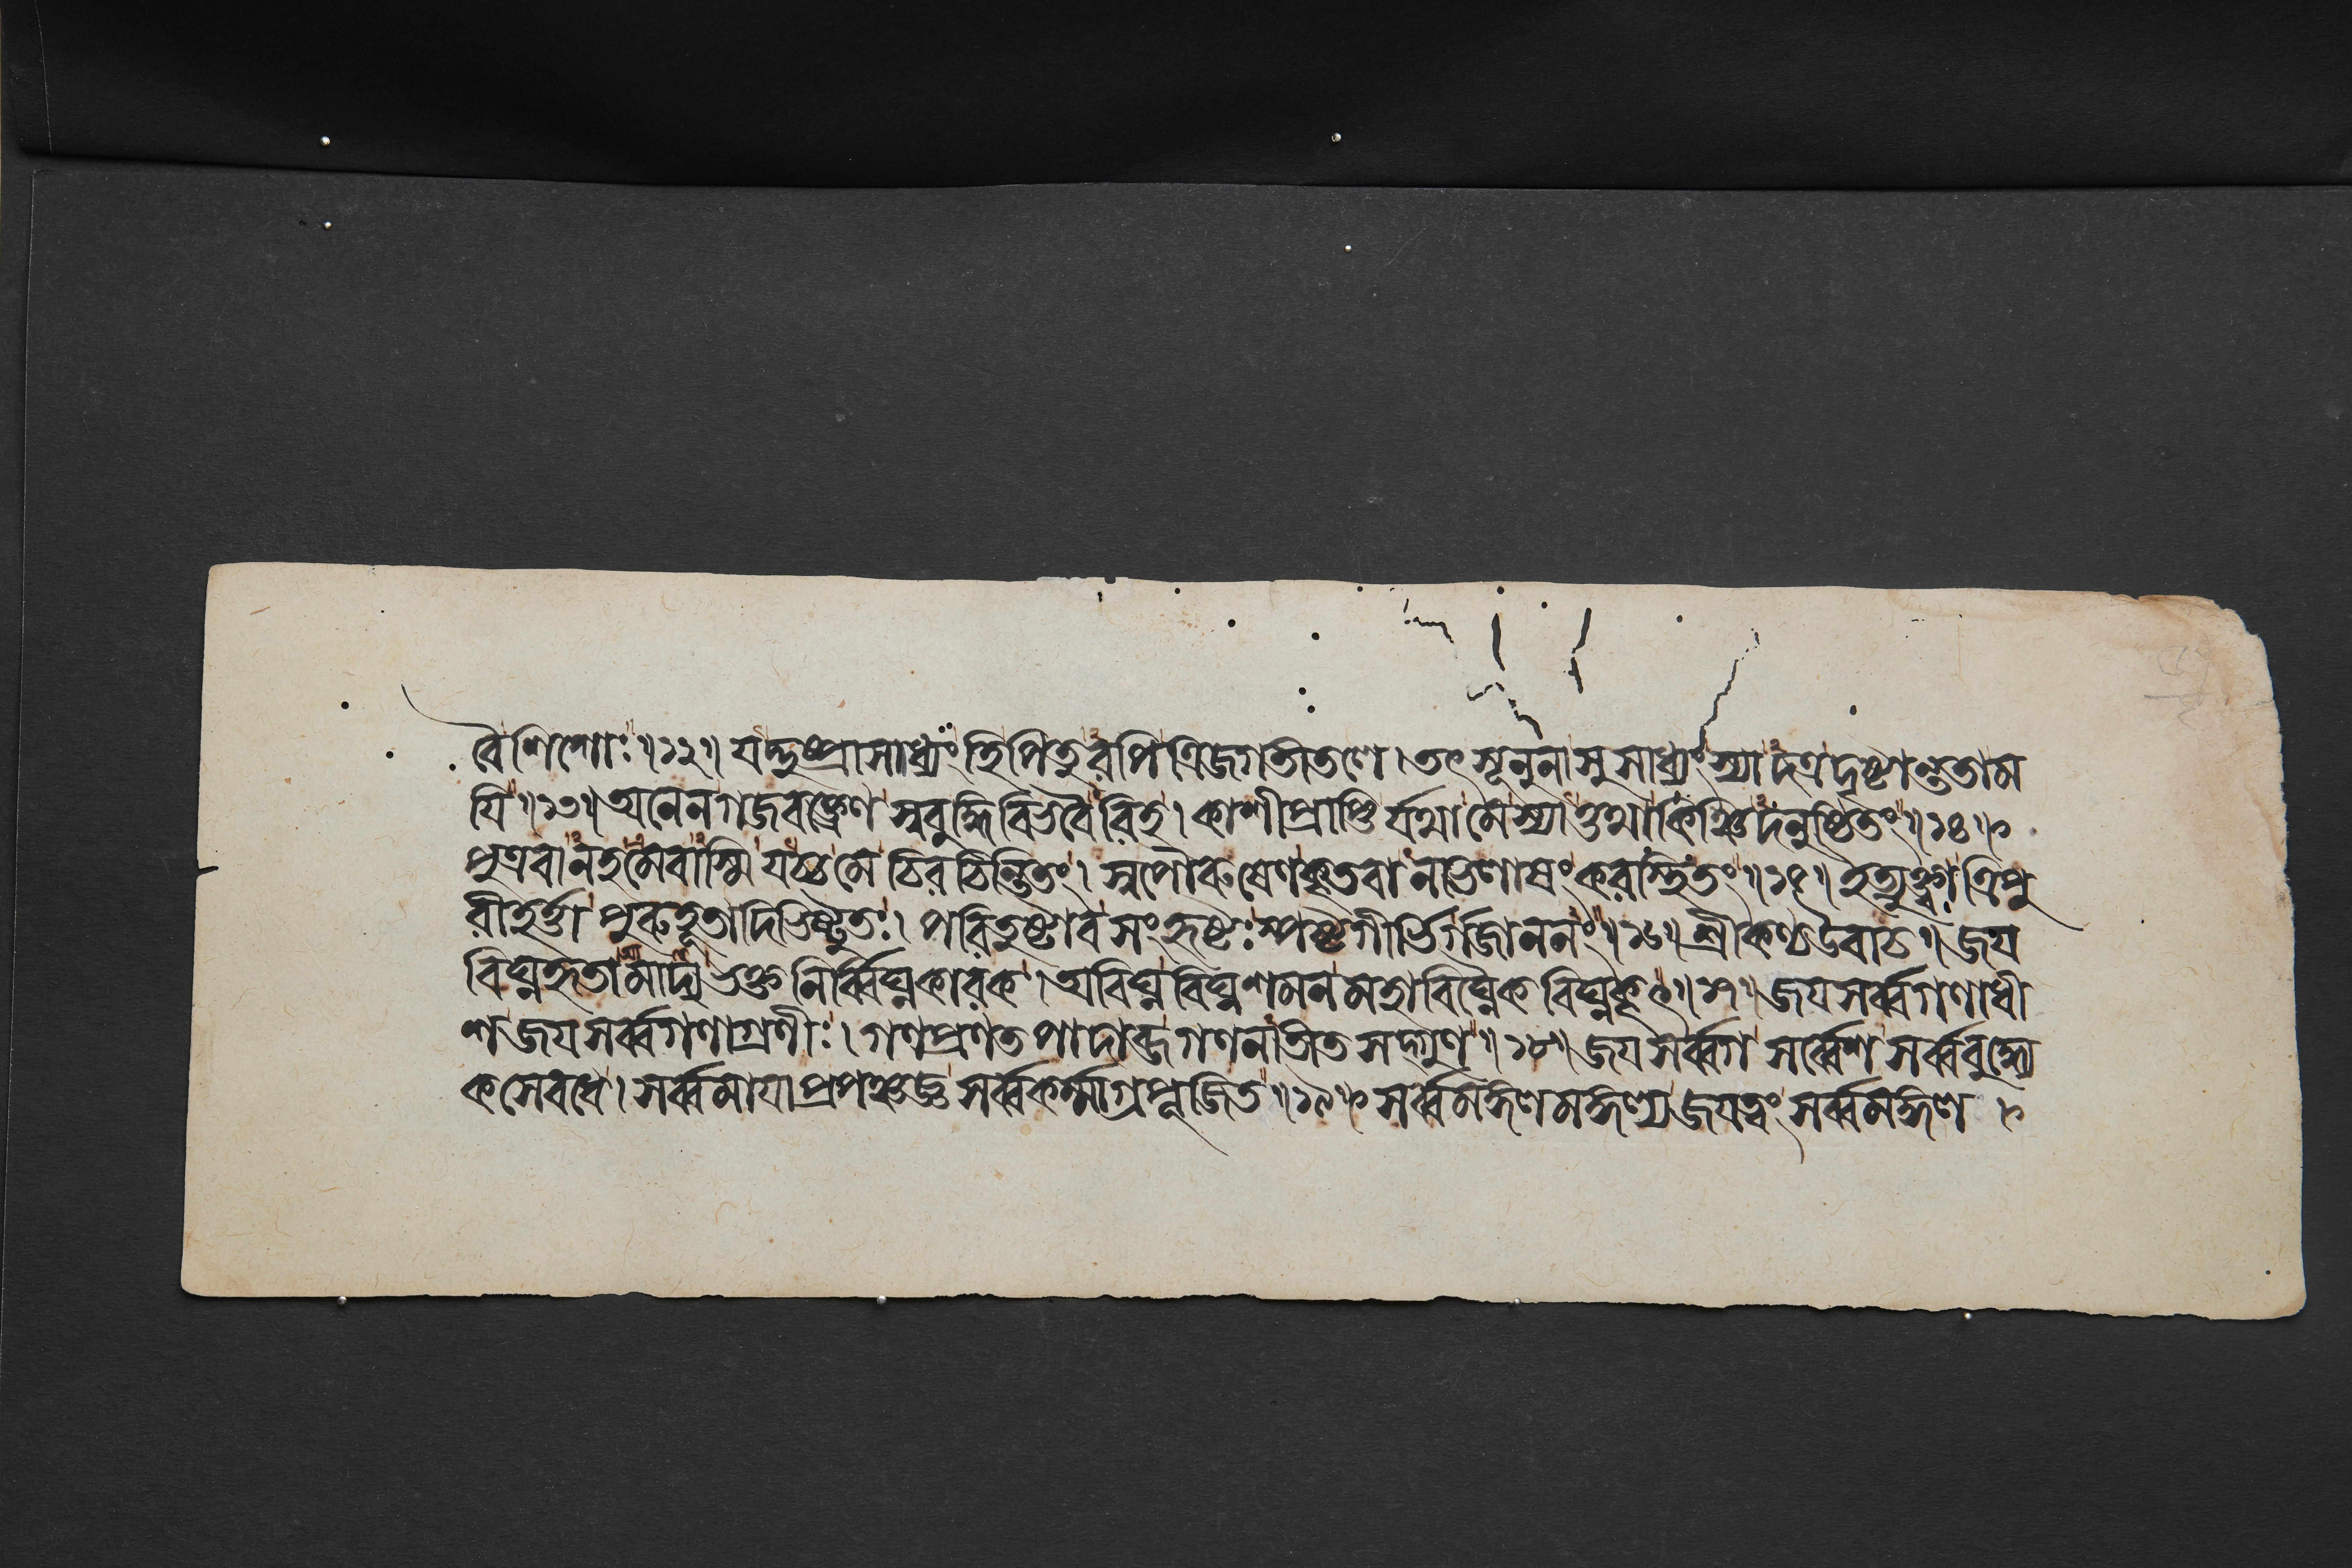 বৈশিশোঃ॥১২॥ যদ্দুষ্প্রাসাধ্যং হি পিতুরপি ত্রিজগতীতলে। তৎ সূনুনা সুসাধ্যং স্যাদত্র দৃষ্টান্ততা ম
যি॥১৩॥ অনেন গজবক্ত্রেণ স্ববুদ্ধিবিভবৈরিহ। কাশীপ্রাপ্তির্যথা মে স্যাত্তথা কিঞ্চিদনুষ্ঠিতং॥১৪॥
পুত্রবানহমেবাস্মি যচ্চ মে চিরচিন্তিতং। স্বপৌরুষেণ কৃতবানভিলাষং করস্থিতং॥১৫॥ ইত্যুক্ত্বা ত্রিপু
রীহর্ত্তা পুরুহূতাদিভিষ্টুতঃ। পরিতুষ্টাব সংহৃষ্টঃ স্পষ্টগীর্ভির্গজাননং॥১৬॥ শ্রীকণ্ঠউবাচ॥ জয়
বিঘ্নহৃতামাদ্য ভক্তনির্ব্বিঘ্নকারক। অবিঘ্ন বিঘ্নশমন মহাবিঘ্নৈকবিঘ্নকৃৎ॥১৭॥ জয় সর্ব্বগণাধী
শ জয় সর্ব্বগণাগ্রণীঃ। গণপ্রণতপাদাব্জ গণনাতীত সদ্গুণ॥১৮॥ জয় সর্ব্বগ সর্ব্বেশ সর্ব্ববুদ্ধ্যে
কসেবধে। সর্ব্বমায়াপ্রপঞ্চজ্ঞ সর্ব্বকর্ম্মাগ্রপূজিত॥১৯॥ সর্ব্বমঙ্গলমঙ্গল্য জয় ত্বং সর্ব্বমঙ্গল